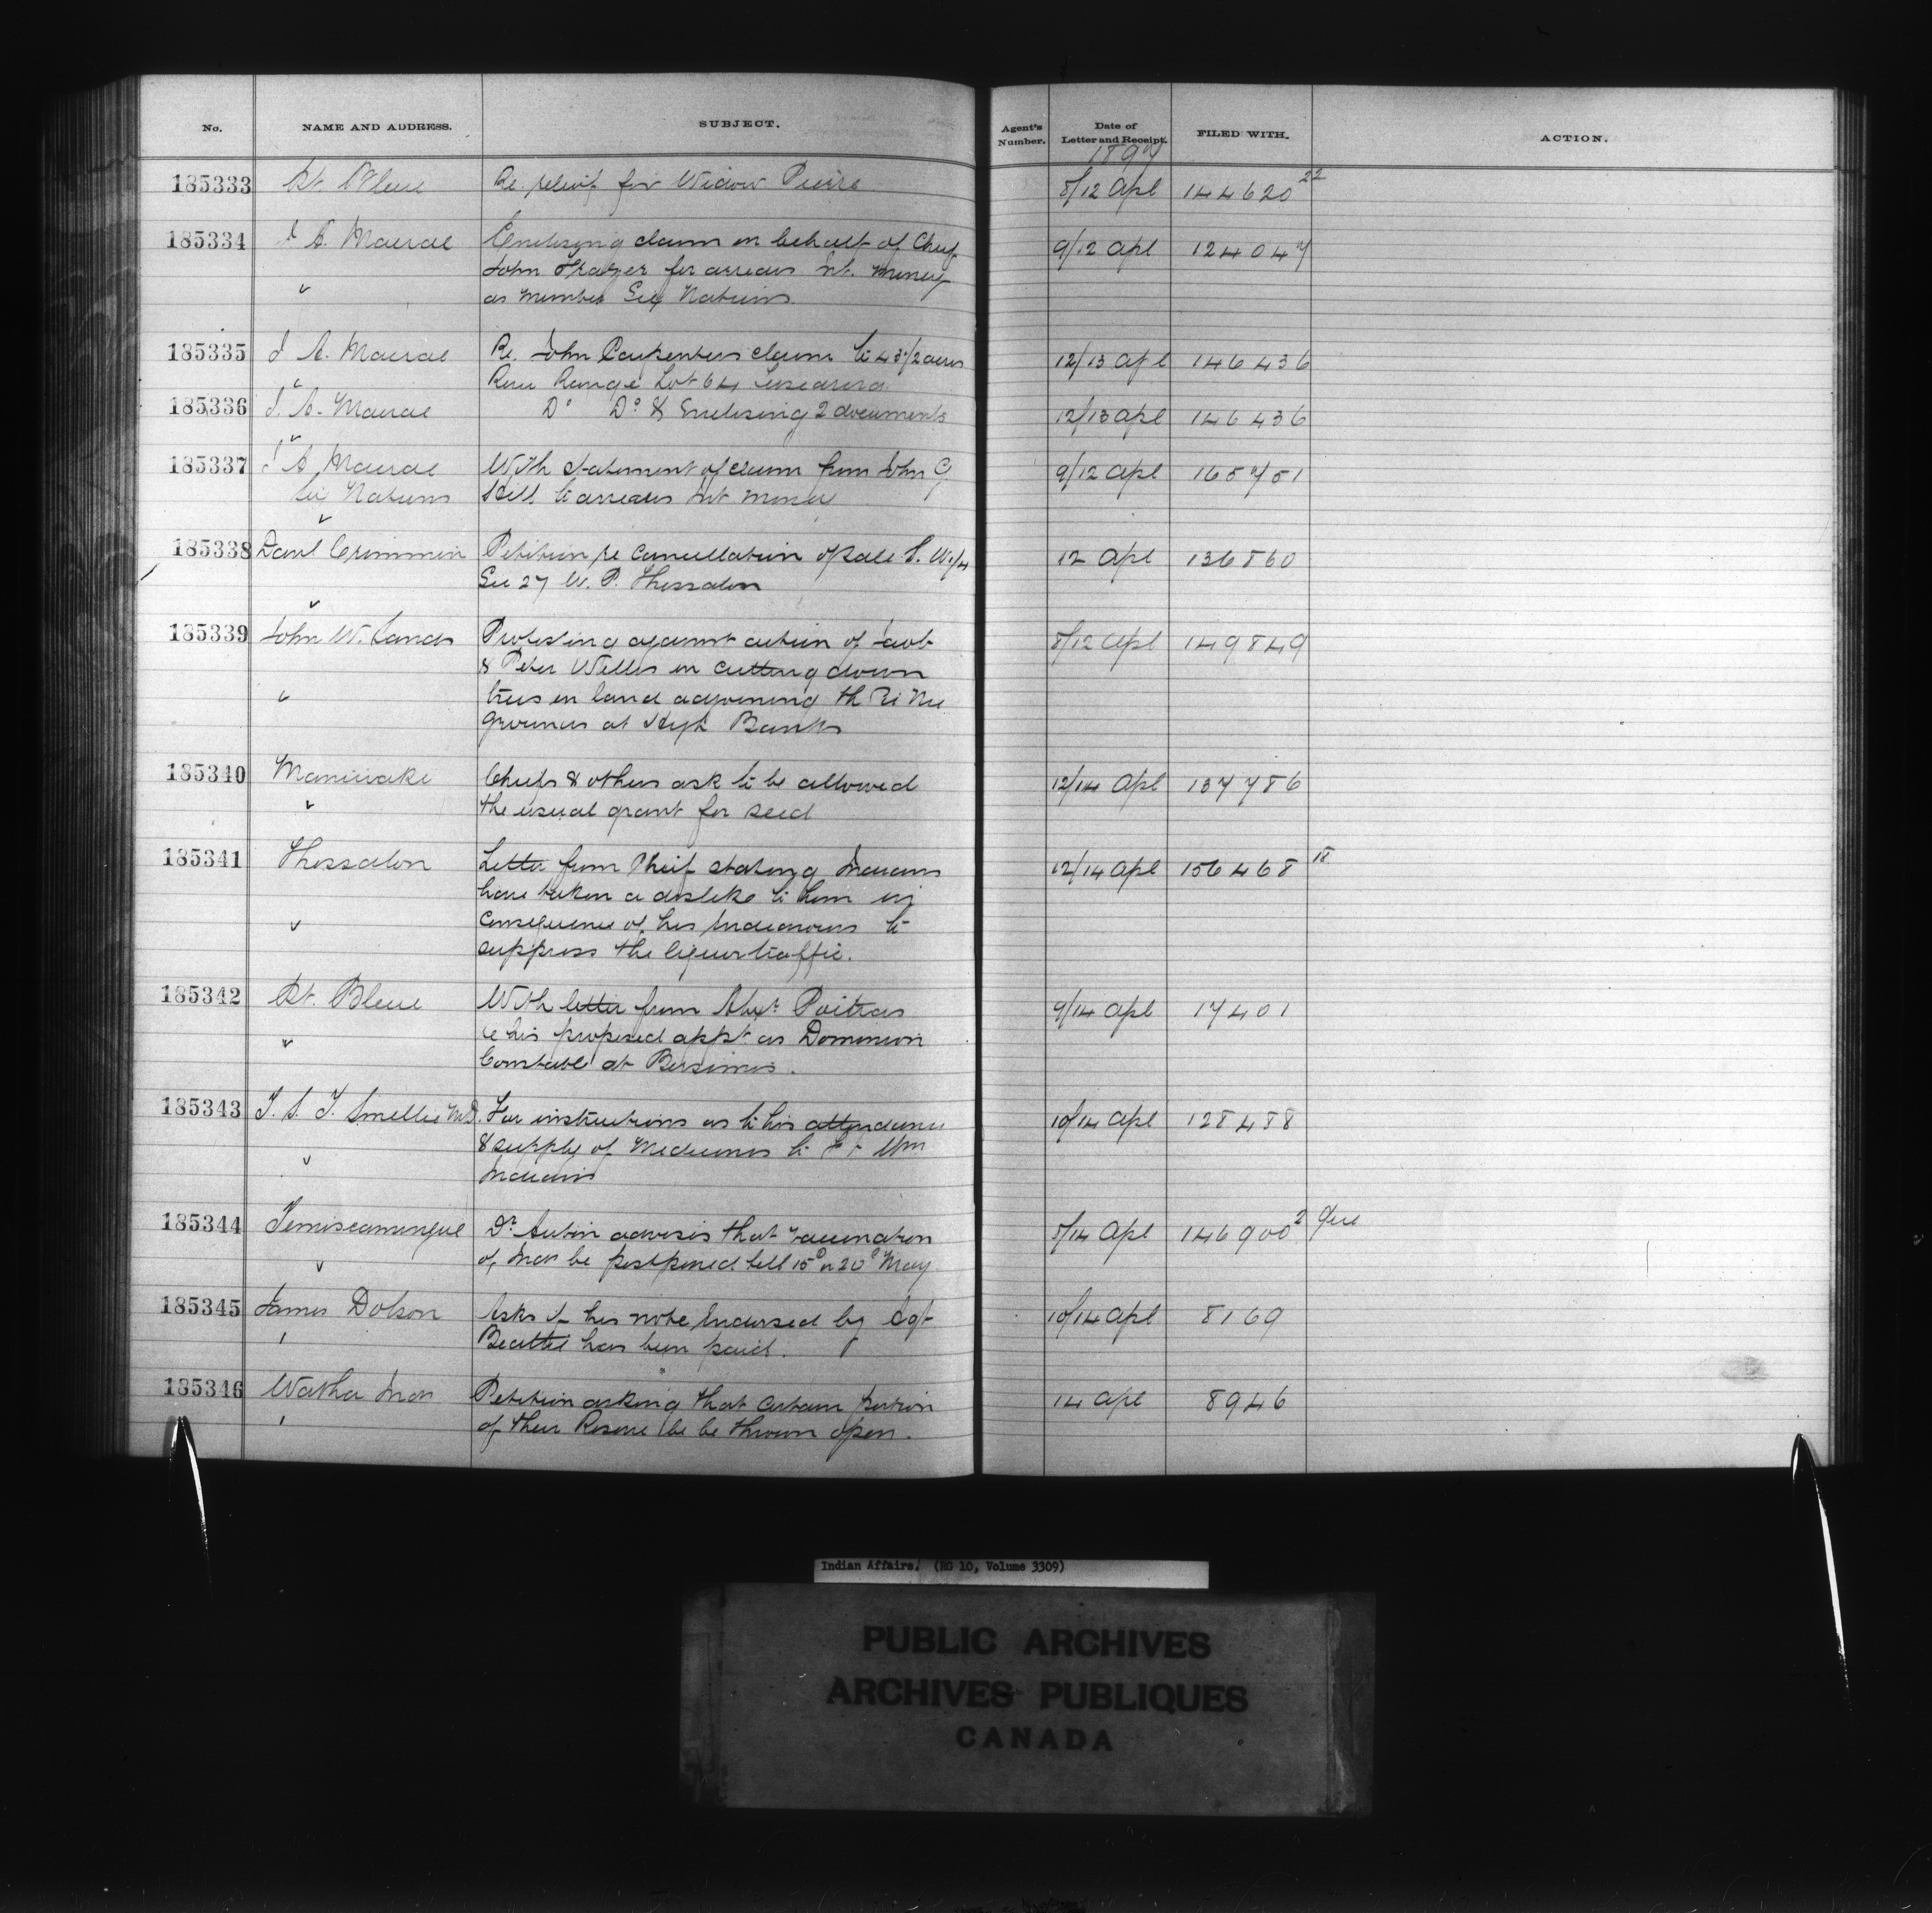 No. NAME AND ADDRESS. SUBJECT. Agent's Number. Date of Letter and Receipt. FILED WITH. ACTION.
1897
185333 Pt. Bleue Re relief for Widow Pierre 8/12 Apl 144620 22
185334 J A. Macrae Enclosing claim on behalf of Chief 9/12 Apl 124047
John Frazer for arrears Int. Money
as member Six Nations
185335 J A. Macrae Re. John Carpenters claim to 43 1/2 acres 12/13 Apl 146436
River Range Lot 64 Tuscarora
185336 J. A. Macrae Do Do & Enclosing 2 documents 12/13 Apl 146436
185337 J A Macrae With statement of claim from John C 9/12 Apl 165751
Six Nations Hill to arrears Int money
185338 Danl Crimmin Petition re Cancellation of sale S. W 1/4 12 Apl 136860
Sec 27 W. P. Thessalon
185339 John W. Sands Protesting against action of 8/12 Apl 149849
& Peter Willis in cutting down
trees on land adjoining the
grounds at High Banks
185340 Maniwaki Chiefs & others ask to be allowed 12/14 Apl 137786
the usual grant for seed
185341 Thessalon Letter from Chief stating Indians 12/14 Apl 156468 18
have taken a dislike to him in
consequence of his Endeavours to
suppress the liquor traffic.
185342 Pt. Bleue With letter from Alexr Poitras 9/14 Apl 17401
re his proposed appt as Dominion
Constable at Bersimis.
185343 T. S. T. Smellie M.D. For instructions as to his attendance 10/14 Apl 128488
& supply of Medicines to Ft Wm
Indians
185344 Temiscamingue Dr Aubin advises that vaccination 8/14 Apl 146900 2 Que
of Inds be postponed till 15th or 20th May
185345 James Dobson Asks if his note Endorsed by Agt 10/14 Apl 8169
Beattie has been paid.
185346 Watha Inds Petition asking that certain portion 14 Apl 8946
of their Reserve be be thrown open.
Indian Affairs. (RG 10, Volume 3309)
PUBLIC ARCHIVES
ARCHIVES PUBLIQUES
CANADA